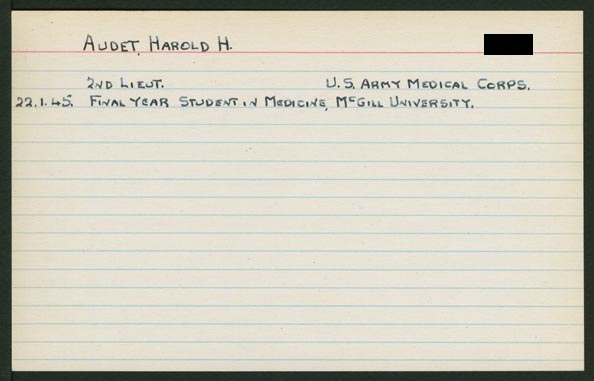 AUDET, HAROLD H.
2ND LIEUT. U.S. ARMY MEDICAL CORPS.
22.1.45. FINAL YEAR STUDENT IN MEDICINE, McGILL UNIVERSITY.